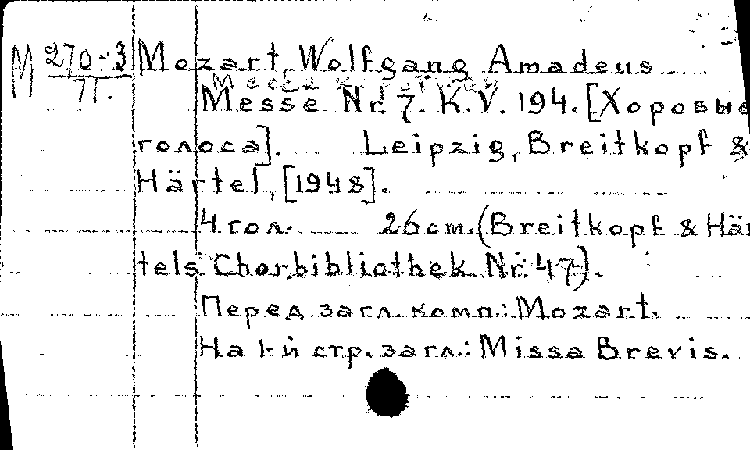 М 270-3 Mozart, Wolfgang Amadeus
71.
Messe Nr. 7. K.V. 194. [Хоровые
голоса]. Leipzig, Breitkopf &
Härtel, [1948].
4 гол. 26 cm. (Breitkopf & Här
tels Chorbibliothek Nr. 47).
Перед загл. комп.: Mozart.
На 1-й стр. загл.: Missa Brevis.